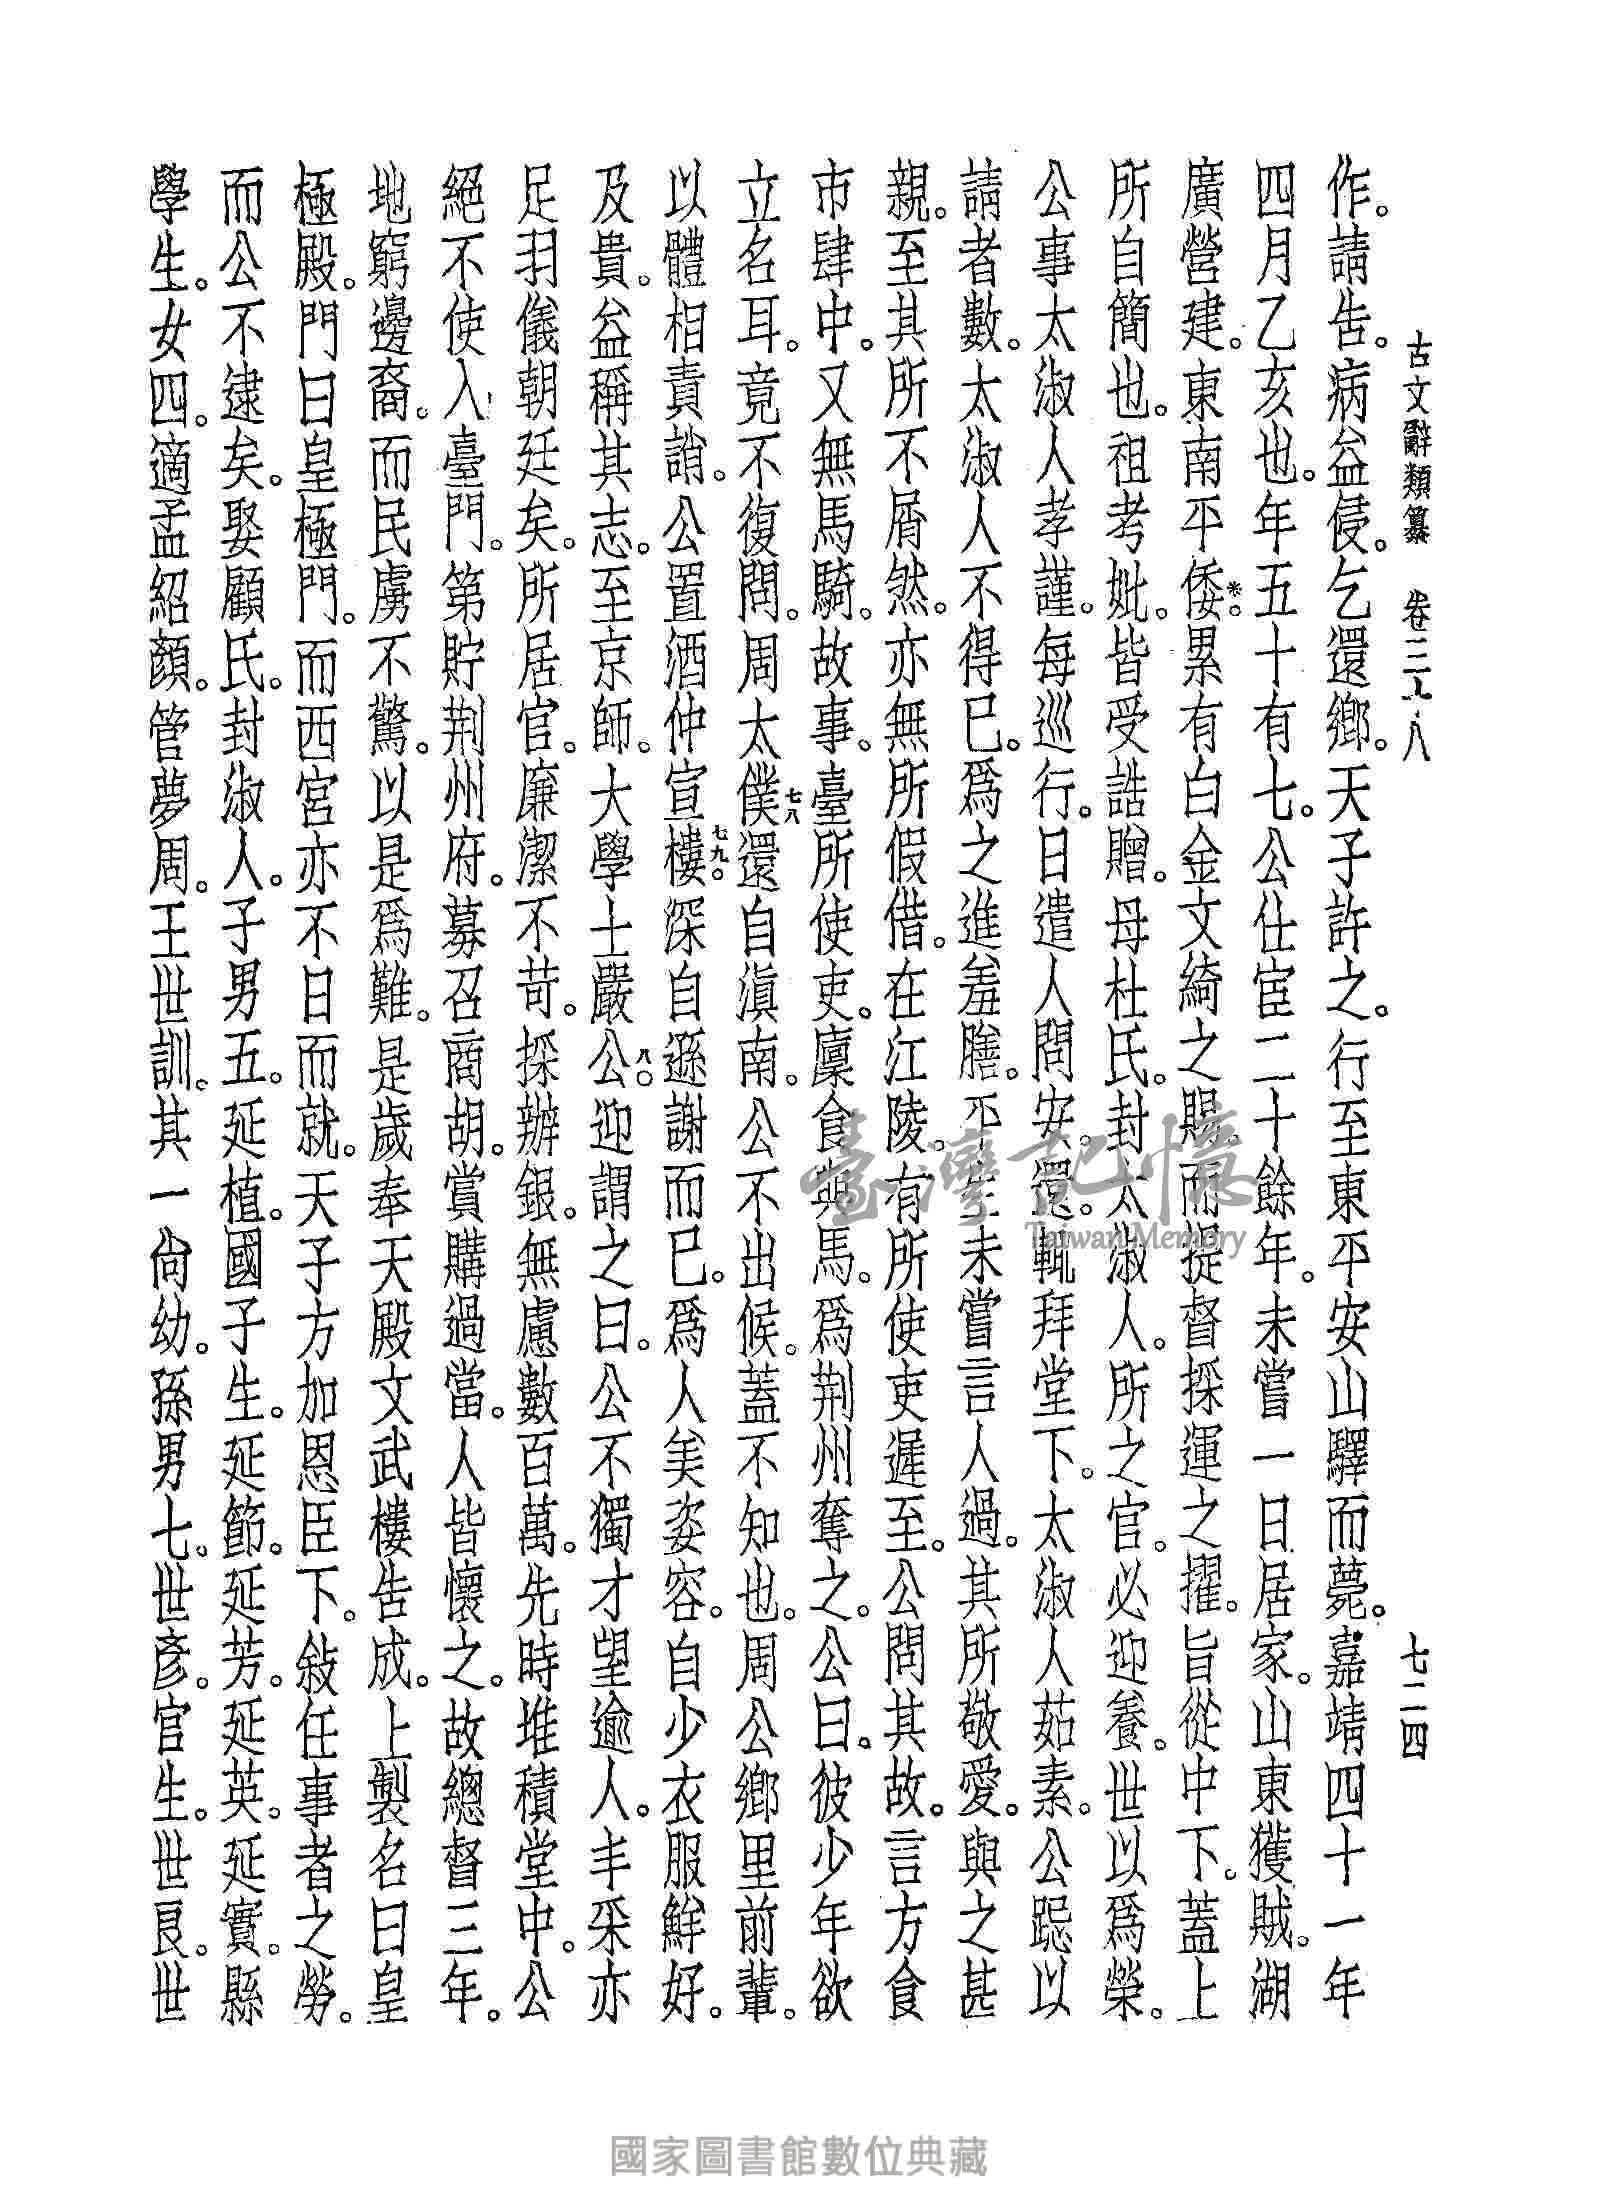 古文辭類纂　卷三十八　七二四
作。請告。病益侵。乞還鄉。天子許之。行至東平安山驛而薨。嘉靖四十一年
四月乙亥也。年五十有七。公仕宦二十餘年。未嘗一日居家。山東獲賊。湖
廣營建。東南平倭。*累有白金文綺之賜。而提督採運之擢。旨從中下。蓋上
所自簡也。祖考妣。皆受誥贈。母杜氏。封太淑人。所之官。必迎養。世以爲榮。
公事太淑人孝謹。每巡行。日遣人問安。還。輒拜堂下。太淑人茹素。公跽以
請者數。太淑人不得已。爲之進羞膳。平生未嘗言人過。其所敬愛。與之甚
親。至其所不屑然。亦無所假借。在江陵。有所使吏遲至。公問其故。言方食
市肆中。又無馬騎。故事。臺所使吏。廩食與馬。爲荆州奪之。公曰。彼少年欲
立名耳。竟不復問。周太僕七八還自滇南。公不出候。蓋不知也。周公鄉里前輩。
以體相責誚。公置酒仲宣樓七九。深自遜謝而已。爲人美姿容。自少衣服鮮好。
及貴。益稱其志。至京師。大學士嚴公八○迎謂之曰。公不獨才望逾人。丰采亦
足羽儀朝廷矣。所居官。廉潔不苛。採辦銀。無慮數百萬。先時堆積堂中。公
絕不使入臺門。第貯荆州府。募召商胡。賞購過當。人皆懷之。故總督三年。
地窮邊裔。而民虜不驚。以是爲難。是歲奉天殿文武樓告成。上製名曰皇
極殿。門曰皇極門。而西宮亦不日而就。天子方加恩臣下。敍任事者之勞。
而公不逮矣。娶顧氏。封淑人。子男五。延植。國子生。延節。延芳。延英。延實。縣
學生。女四。適孟紹顏。管夢周。王世訓。其一尙幼。孫男七。世彥。官生。世良。世
臺灣記憶
Taiwan Memory
國家圖書館數位典藏